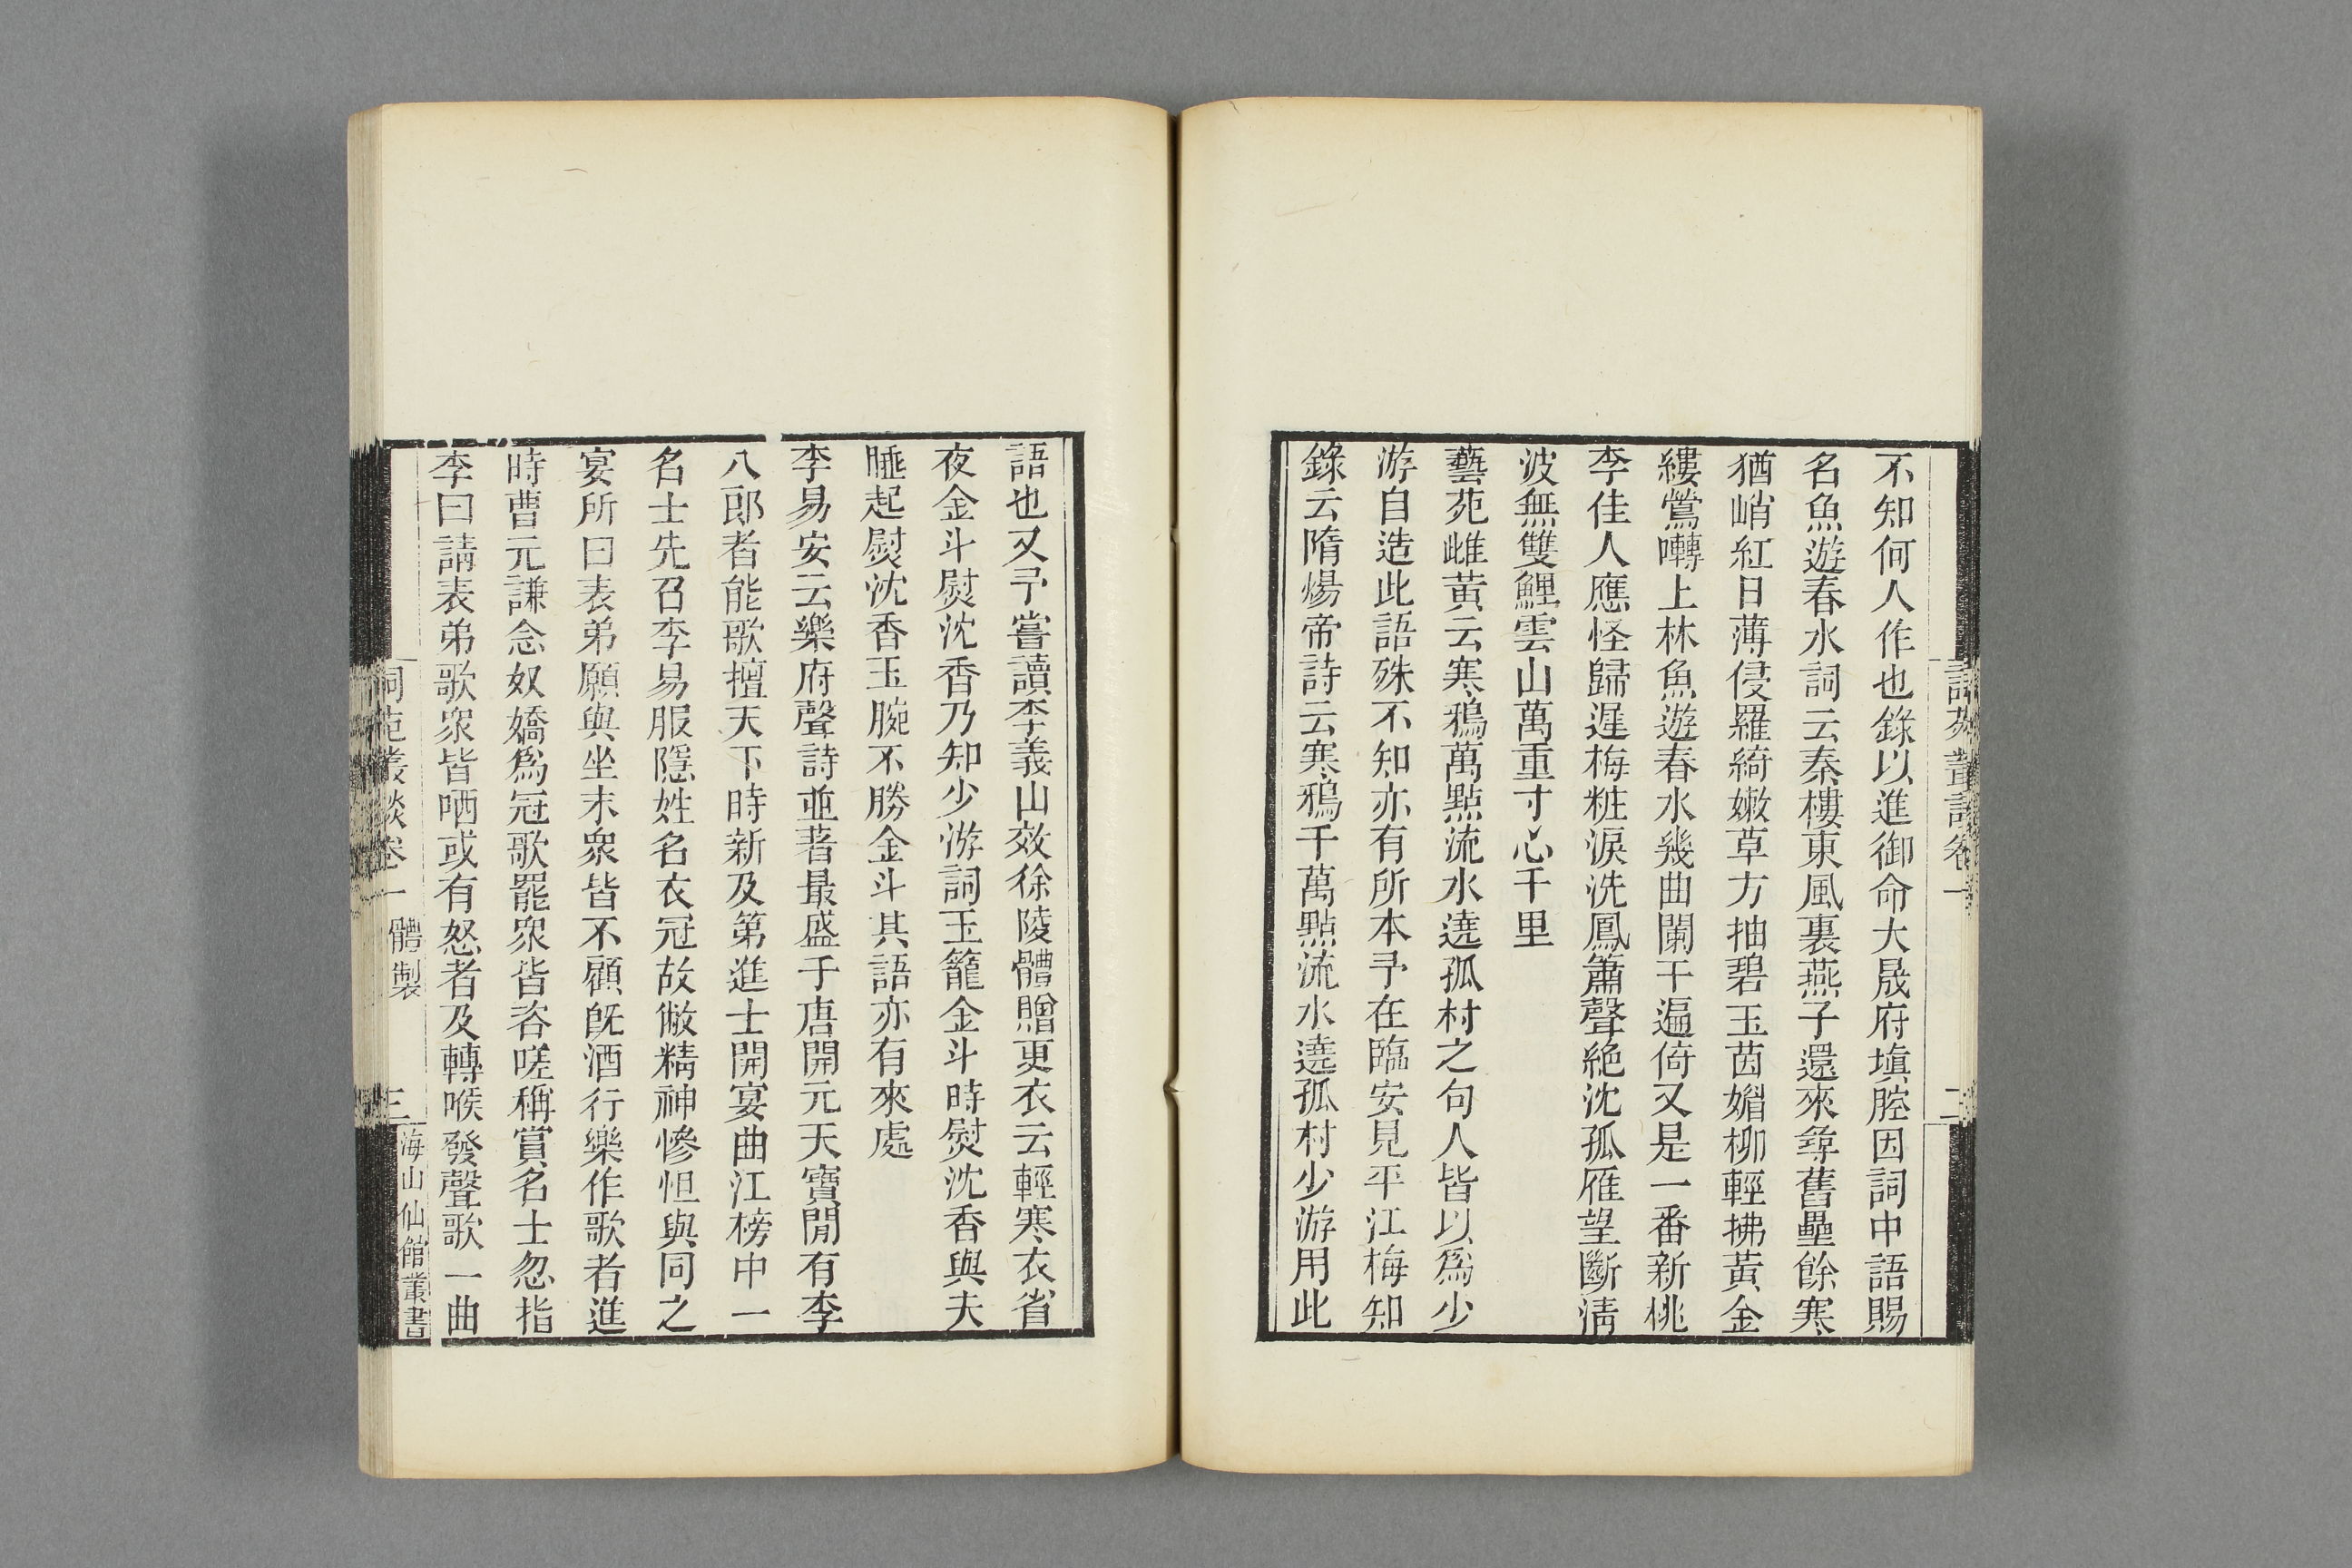 不知何人作也錄以進御命大晟府塡腔因詞中語賜
名魚遊春水詞云秦樓東風裏燕子還來尋舊壘餘寒
猶峭紅日薄侵羅綺嫩草方抽碧玉茵媚柳輕拂黃金
縷鶯囀上林魚遊春水幾曲闌干遍倚又是一番新桃
李佳人應怪歸遲梅粧淚洗鳳簫聲絶沈孤雁望斷淸
波無雙鯉雲山萬重寸心千里
藝苑雌黃云寒鴉萬點流水遶孤村之句人皆以爲少
游自造此語殊不知亦有所本予在臨安見平江梅知
錄云隋煬帝詩云寒鴉千萬點流水遶孤村少游用此
語也又予嘗讀李義山效徐陵體贈更衣云輕寒衣省
夜金斗熨沈香乃知少游詞玉籠金斗時熨沈香與夫
睡起熨沈香玉腕不勝金斗其語亦有來處
李易安云樂府聲詩並著最盛于唐開元天寶閒有李
八郎者能歌擅天下時新及第進士開宴曲江榜中一
名士先召李易服隱姓名衣冠故敝精神慘怛與同之
宴所曰表弟願與坐末衆皆不顧旣酒行樂作歌者進
時曹元謙念奴嬌爲冠歌罷衆皆咨嗟稱賞名士忽指
李曰請表弟歌衆皆哂或有怒者及轉喉發聲歌一曲
詞苑叢談卷一 體製 三 海山仙館叢書